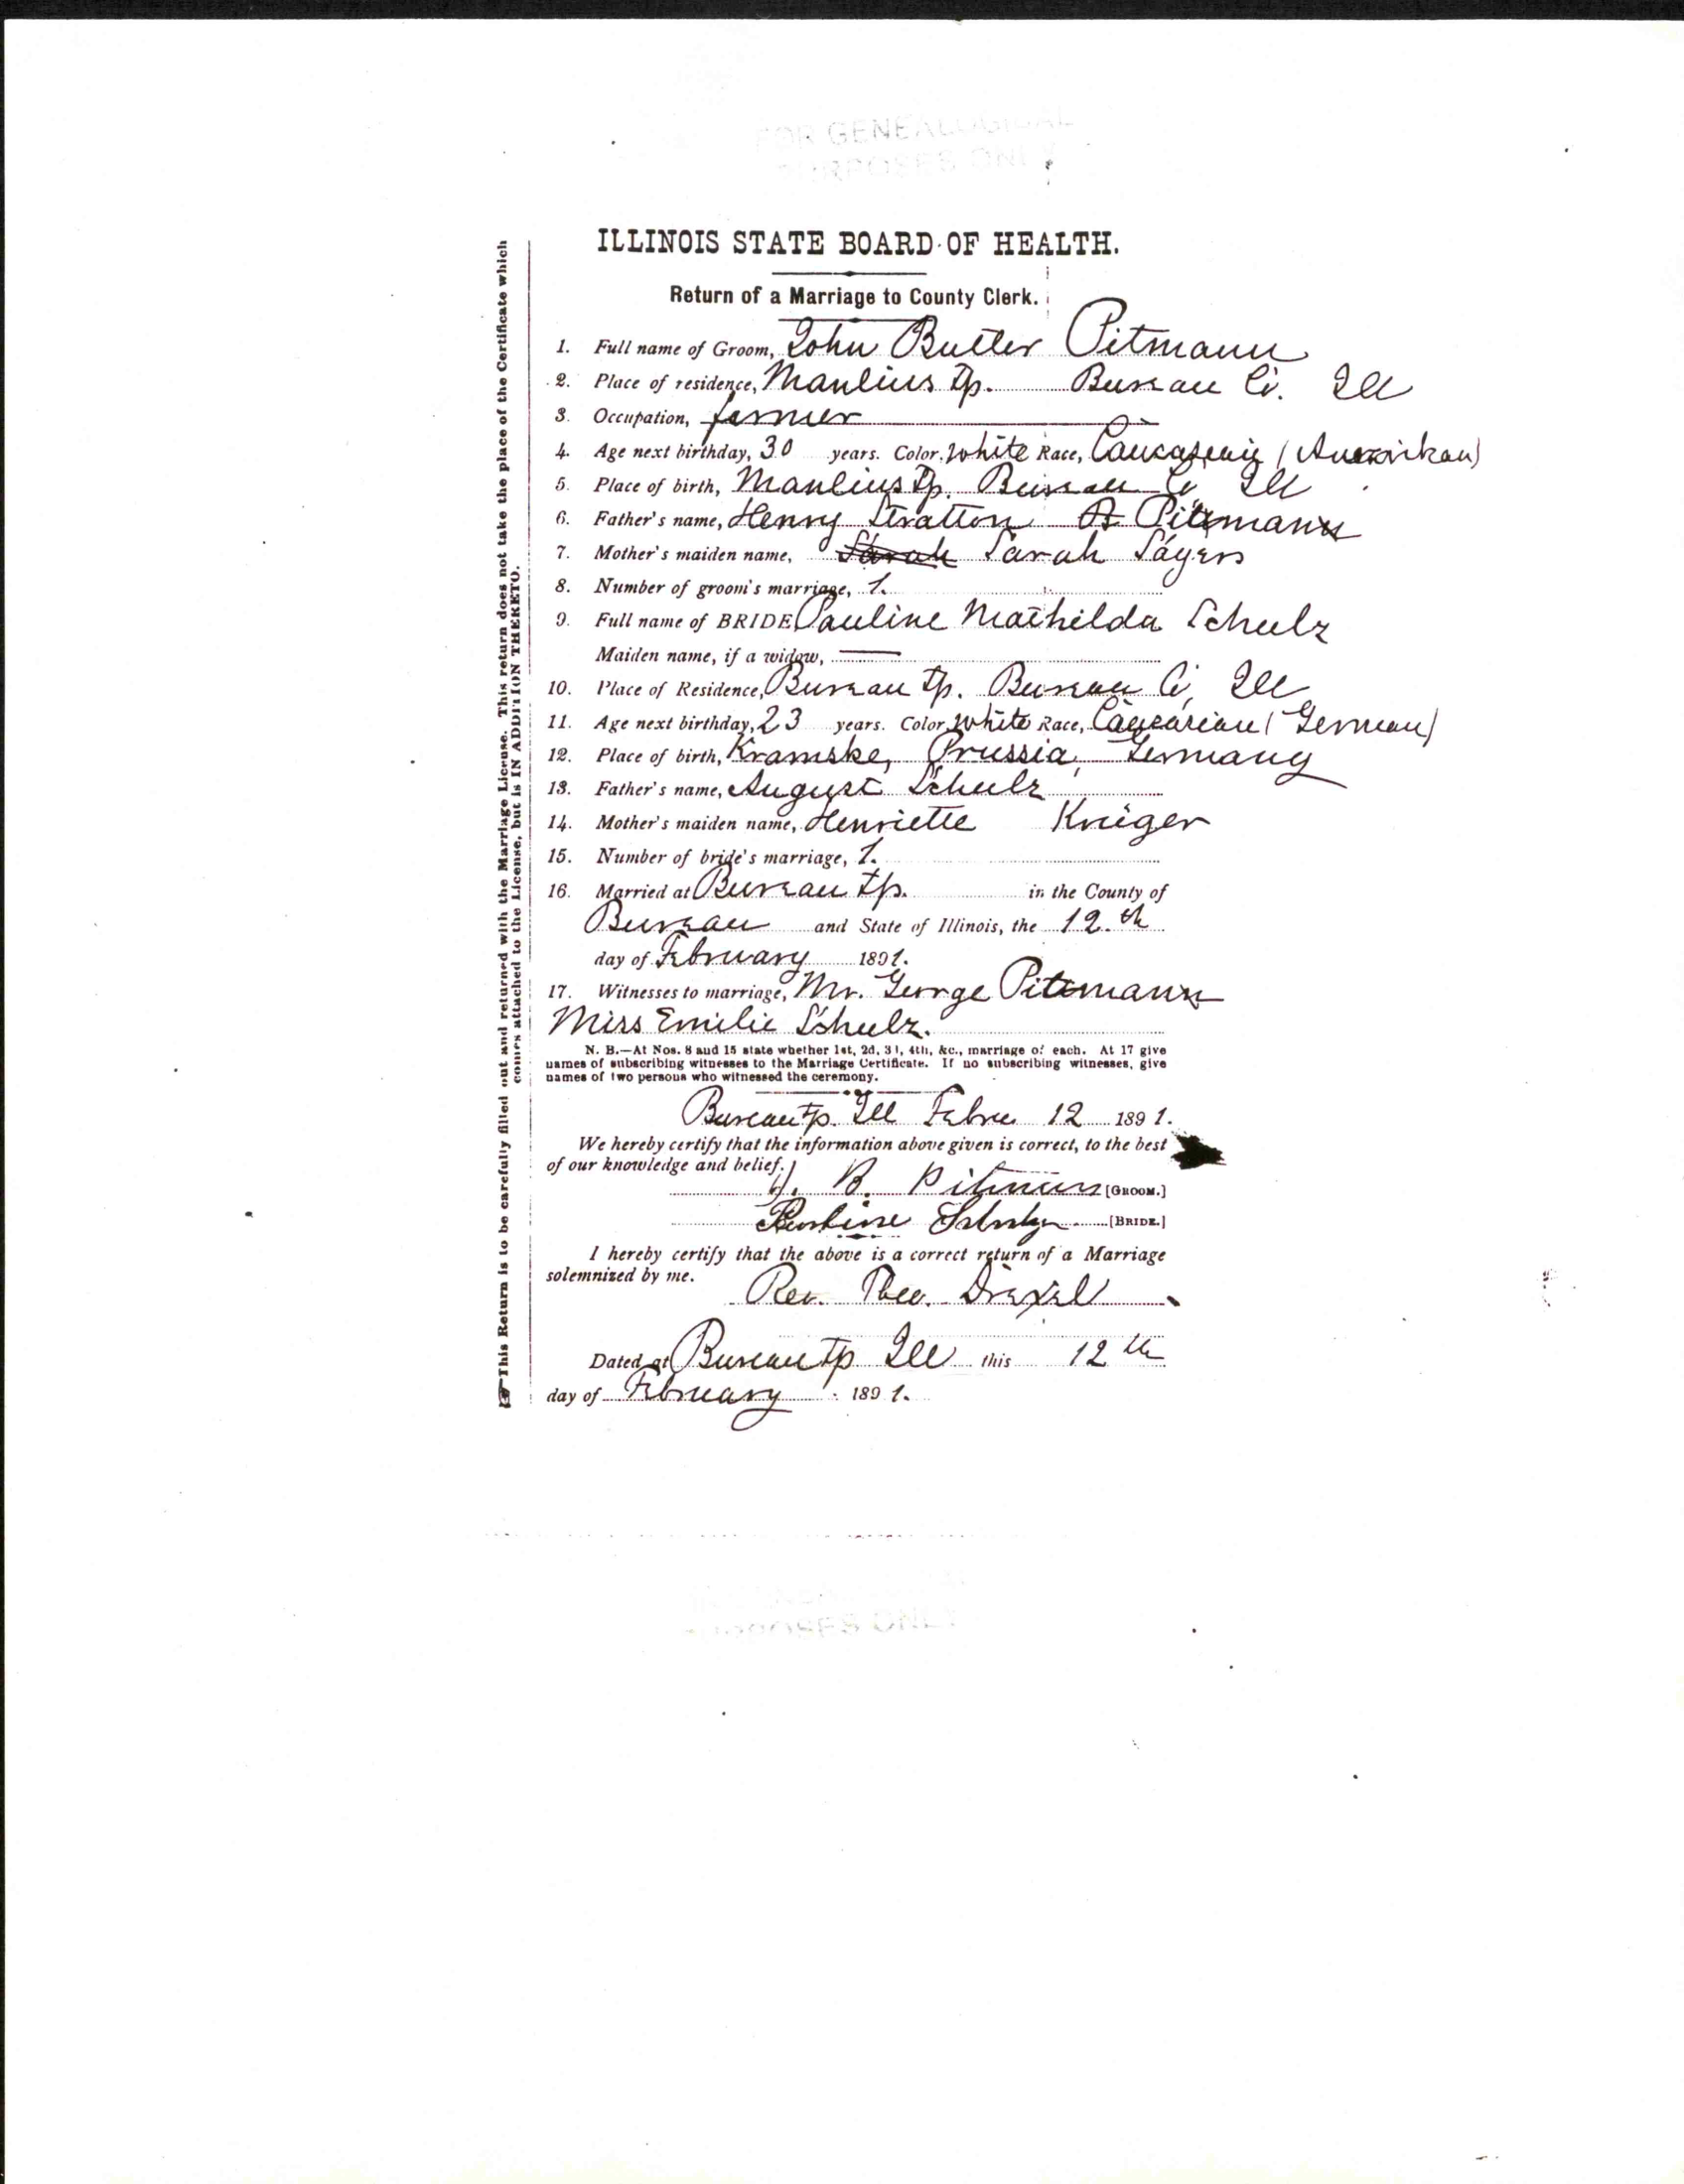 FOR GENEALOGICAL
PURPOSES ONLY
ILLINOIS STATE BOARD OF HEALTH.
Return of a Marriage to County Clerk.
1. Full name of Groom, John Butler Pitmann
2. Place of residence, Manlius Tp. Bureau Co. Ill
3. Occupation, farmer
4. Age next birthday, 30 years. Color, white Race, (Amerikan)
5. Place of birth, Manlius Tp. Bureau Co Ill
6. Father's name, Henry Stratton Pittmann
7. Mother's maiden name, Sarah Sarah Sayers
8. Number of groom's marriage, 1.
9. Full name of BRIDE, Pauline Mathilda Schulz
Maiden name, if a widow, —
10. Place of Residence, Bureau Tp. Bureau Co, Ill
11. Age next birthday, 23 years. Color, white Race, Caucasian (German)
12. Place of birth, Kramske, Prussia, Germany
13. Father's name, August Schulz
14. Mother's maiden name, Henriette Krüger
15. Number of bride's marriage, 1.
16. Married at Bureau Tp. in the County of
Bureau and State of Illinois, the 12.th
day of February 1891.
17. Witnesses to marriage, Mr. George Pitmann
Miss Emilie Schulz.
N. B.—At Nos. 8 and 15 state whether 1st, 2d, 3d, 4th, &c., marriage of each. At 17 give
names of subscribing witnesses to the Marriage Certificate. If no subscribing witnesses, give
names of two persons who witnessed the ceremony.
Bureau Tp. Ill Febru 12 1891.
We hereby certify that the information above given is correct, to the best
of our knowledge and belief.
J. B. Pitman [GROOM.]
Pauline Schulz [BRIDE.]
I hereby certify that the above is a correct return of a Marriage
solemnized by me.
Rev. Theo. Drexel
Dated at Bureau Tp Ill this 12th
day of February 1891.
☞This Return is to be carefully filled out and returned with the Marriage License. This return does not take the place of the Certificate which
comes attached to the License, but is IN ADDITION THERETO.
PURPOSES ONLY